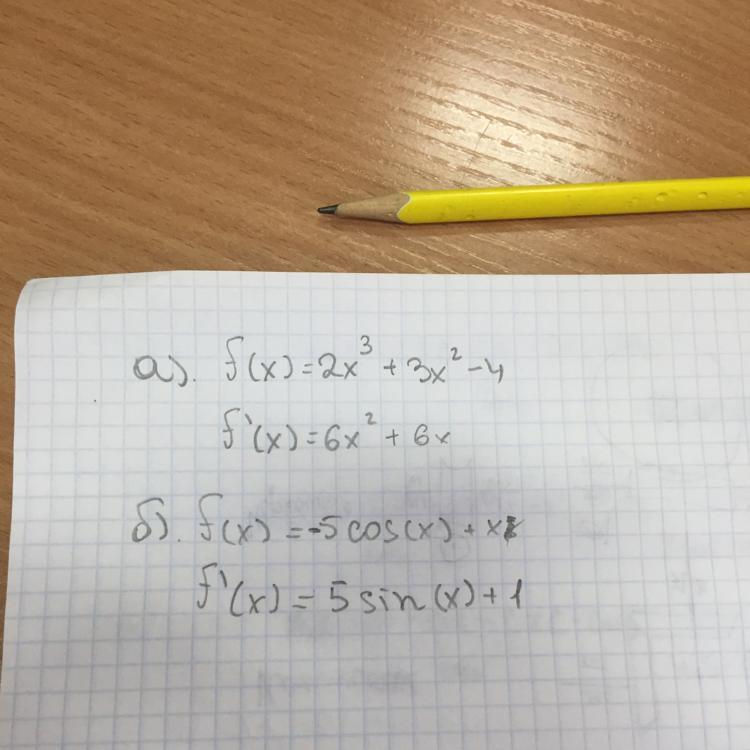 а). f(x)=2x³+3x²-4
f'(x)=6x²+6x
б). f(x)=-5cos(x)+x
f'(x)=5sin(x)+1